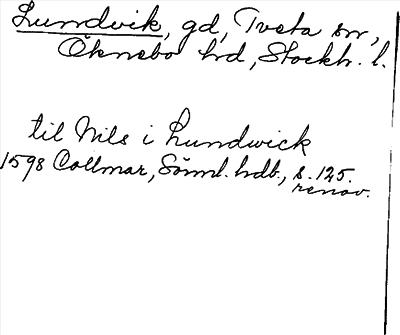 Lundvik, gd, Tveta sn,
Öknebo hd, Stockh. l.
til Nils i Lundwick
1598 Collmar, Sörml. hdb., s. 125.
renov.